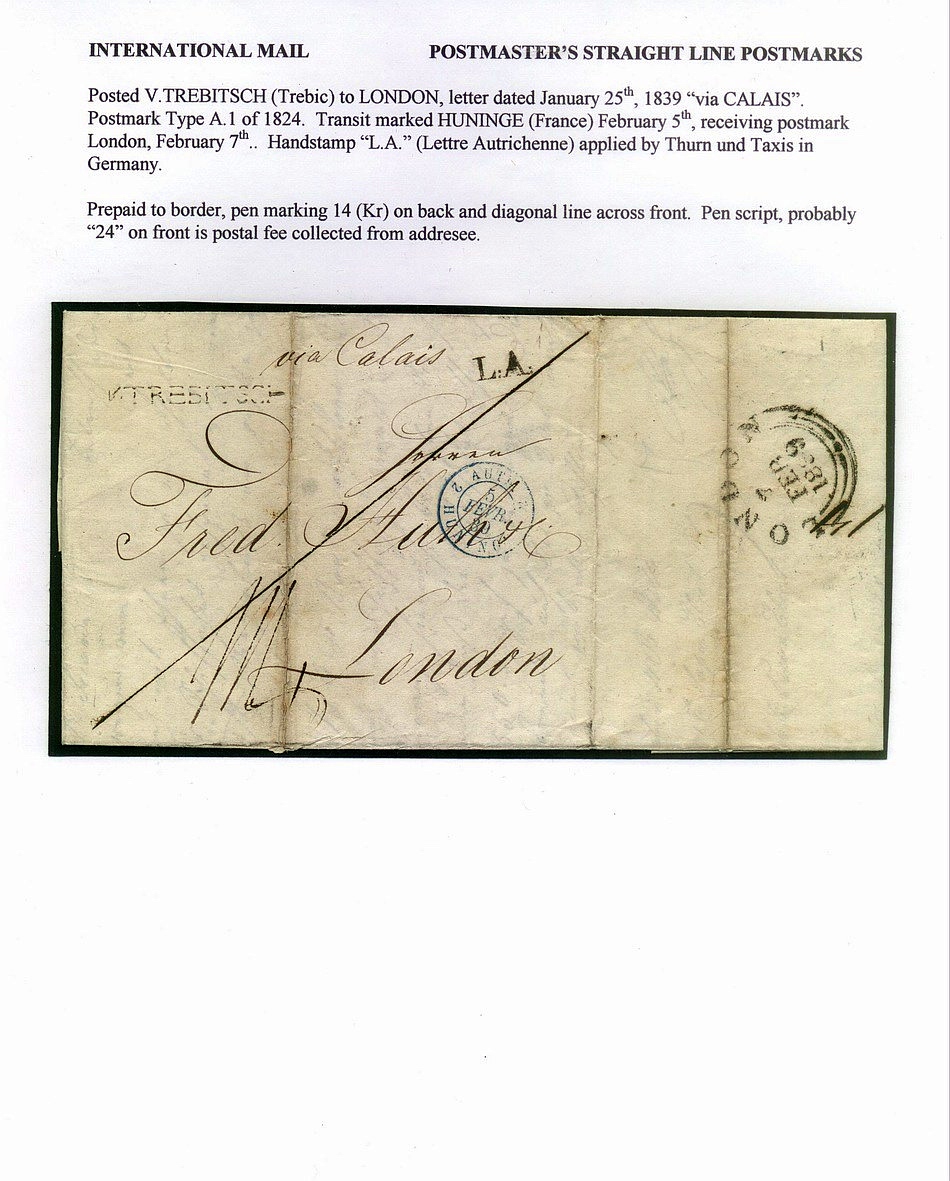 INTERNATIONAL MAIL POSTMASTER'S STRAIGHT LINE POSTMARKS
Posted V.TREBITSCH (Trebic) to LONDON, letter dated January 25th, 1839 “via CALAIS”.
Postmark Type A.1 of 1824. Transit marked HUNINGE (France) February 5th, receiving postmark
London, February 7th.. Handstamp “L.A.” (Lettre Autrichenne) applied by Thurn und Taxis in
Germany.
Prepaid to border, pen marking 14 (Kr) on back and diagonal line across front. Pen script, probably
“24” on front is postal fee collected from addresee.
via Calais
L.A.
V.TREBITSCH
Herren
Fred. Huth
London
5
FEVR.
LONDON
FEB
1839
14